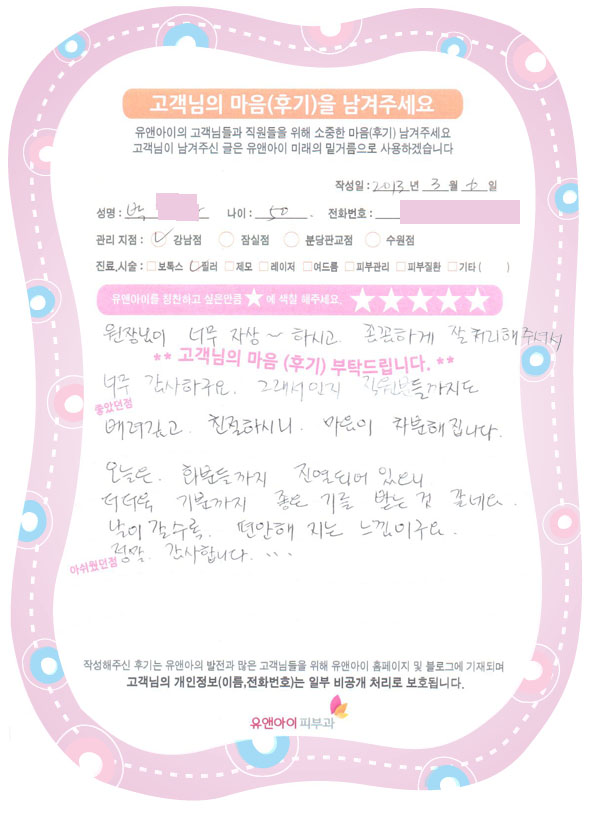 고객님의 마음(후기)을 남겨주세요
유앤아이의 고객님들과 직원들을 위해 소중한 마음(후기) 남겨주세요
고객님이 남겨주신 글은 유앤아이 미래의 밑거름으로 사용하겠습니다
작성일 : 2013 년 3 월 일
성명 : 박 나이 : 50 . 전화번호 :
관리 지점 : 강남점 잠실점 분당판교점 수원점
진료,시술 : 보톡스 필러 제모 레이저 여드름 피부관리 피부질환 기타 ( )
유앤아이를 칭찬하고 싶은만큼 ★ 에 색칠 해주세요. ★★★★★
원장님이 너무 자상~ 하시고. 꼼꼼하게 잘 처리해주셔서
** 고객님의 마음 (후기) 부탁드립니다. **
너무 감사하구요. 그래서인지 직원분들까지도
좋았던점
배려깊고. 친절하시니. 마음이 차분해집니다.
오늘은. 화분들까지 진열되어 있으니
더더욱 기분까지 좋은 기를 받는 것 같네요.
날이 갈수록. 편안해 지는 느낌이구요.
정말. 감사합니다. ...
아쉬웠던점
작성해주신 후기는 유앤아의 발전과 많은 고객님들을 위해 유앤아이 홈페이지 및 블로그에 기재되며
고객님의 개인정보(이름,전화번호)는 일부 비공개 처리로 보호됩니다.
유앤아이 피부과